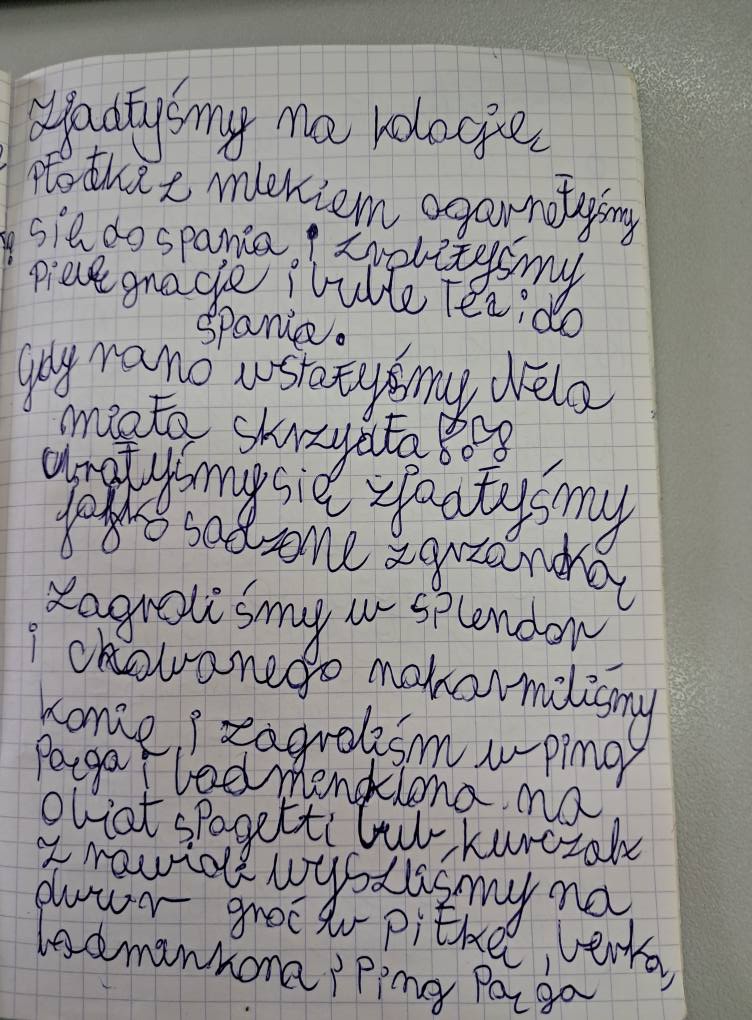 Zjadłyśmy na kolacje
Płatki z mlekiem ogarnełyśmy
się do spania i zrobiłyśmy
pielęgnacje i Też i do
spania.
Gdy rano wstałyśmy Nela
miała skrzydła
się zjadłyśmy
jajko sadzone z grzanką
zagraliśmy w splendor
i chowanego nakarmiliśmy
konie i zagraliśm w ping
Pąga i badminktona na
obiat spagetti lub kurczak
z wyszliśmy na
dwur grać w piłkę, berka,
badminkona i Ping Pąga